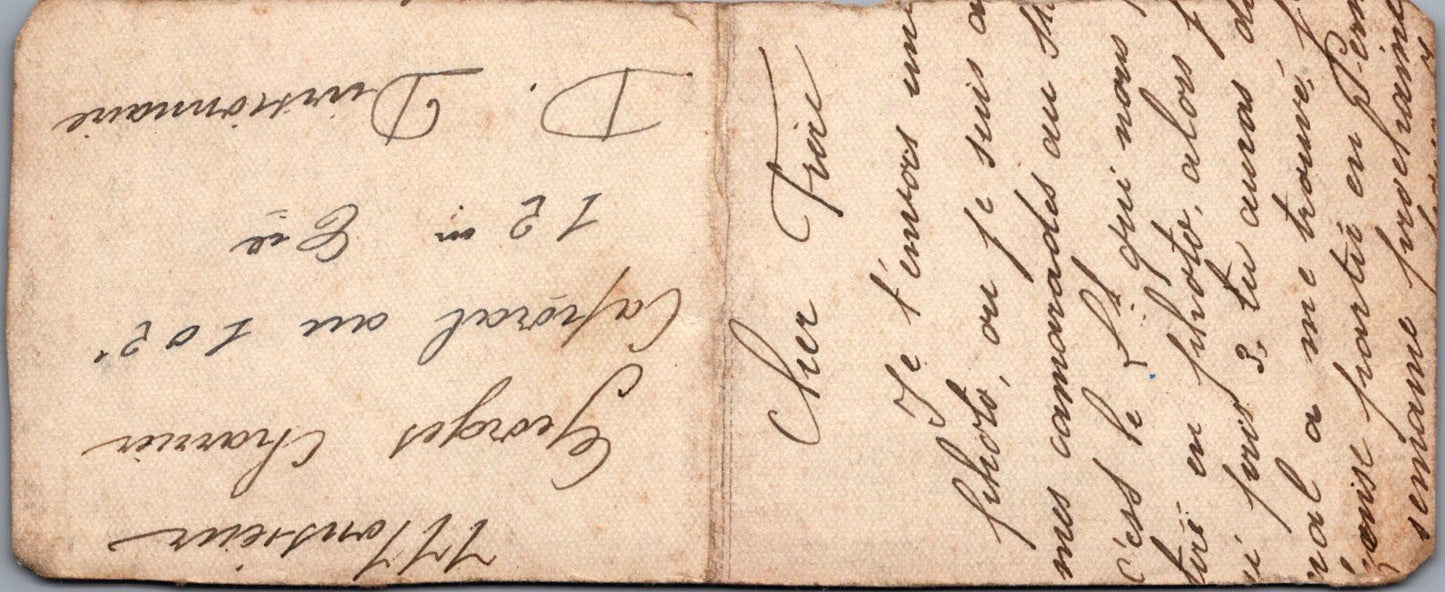 Monsieur
Georges Charrier
Caporal au 102e
12 m Cie
D. Divisionnaire
Cher Frère
Je t'envois une
photo, ou je suis a
mes camarades au
c'est le Lt qui nous
tiré en photo, alors
fois 3, tu auras
mal a me trouvé,
partie en
semaine prochaine